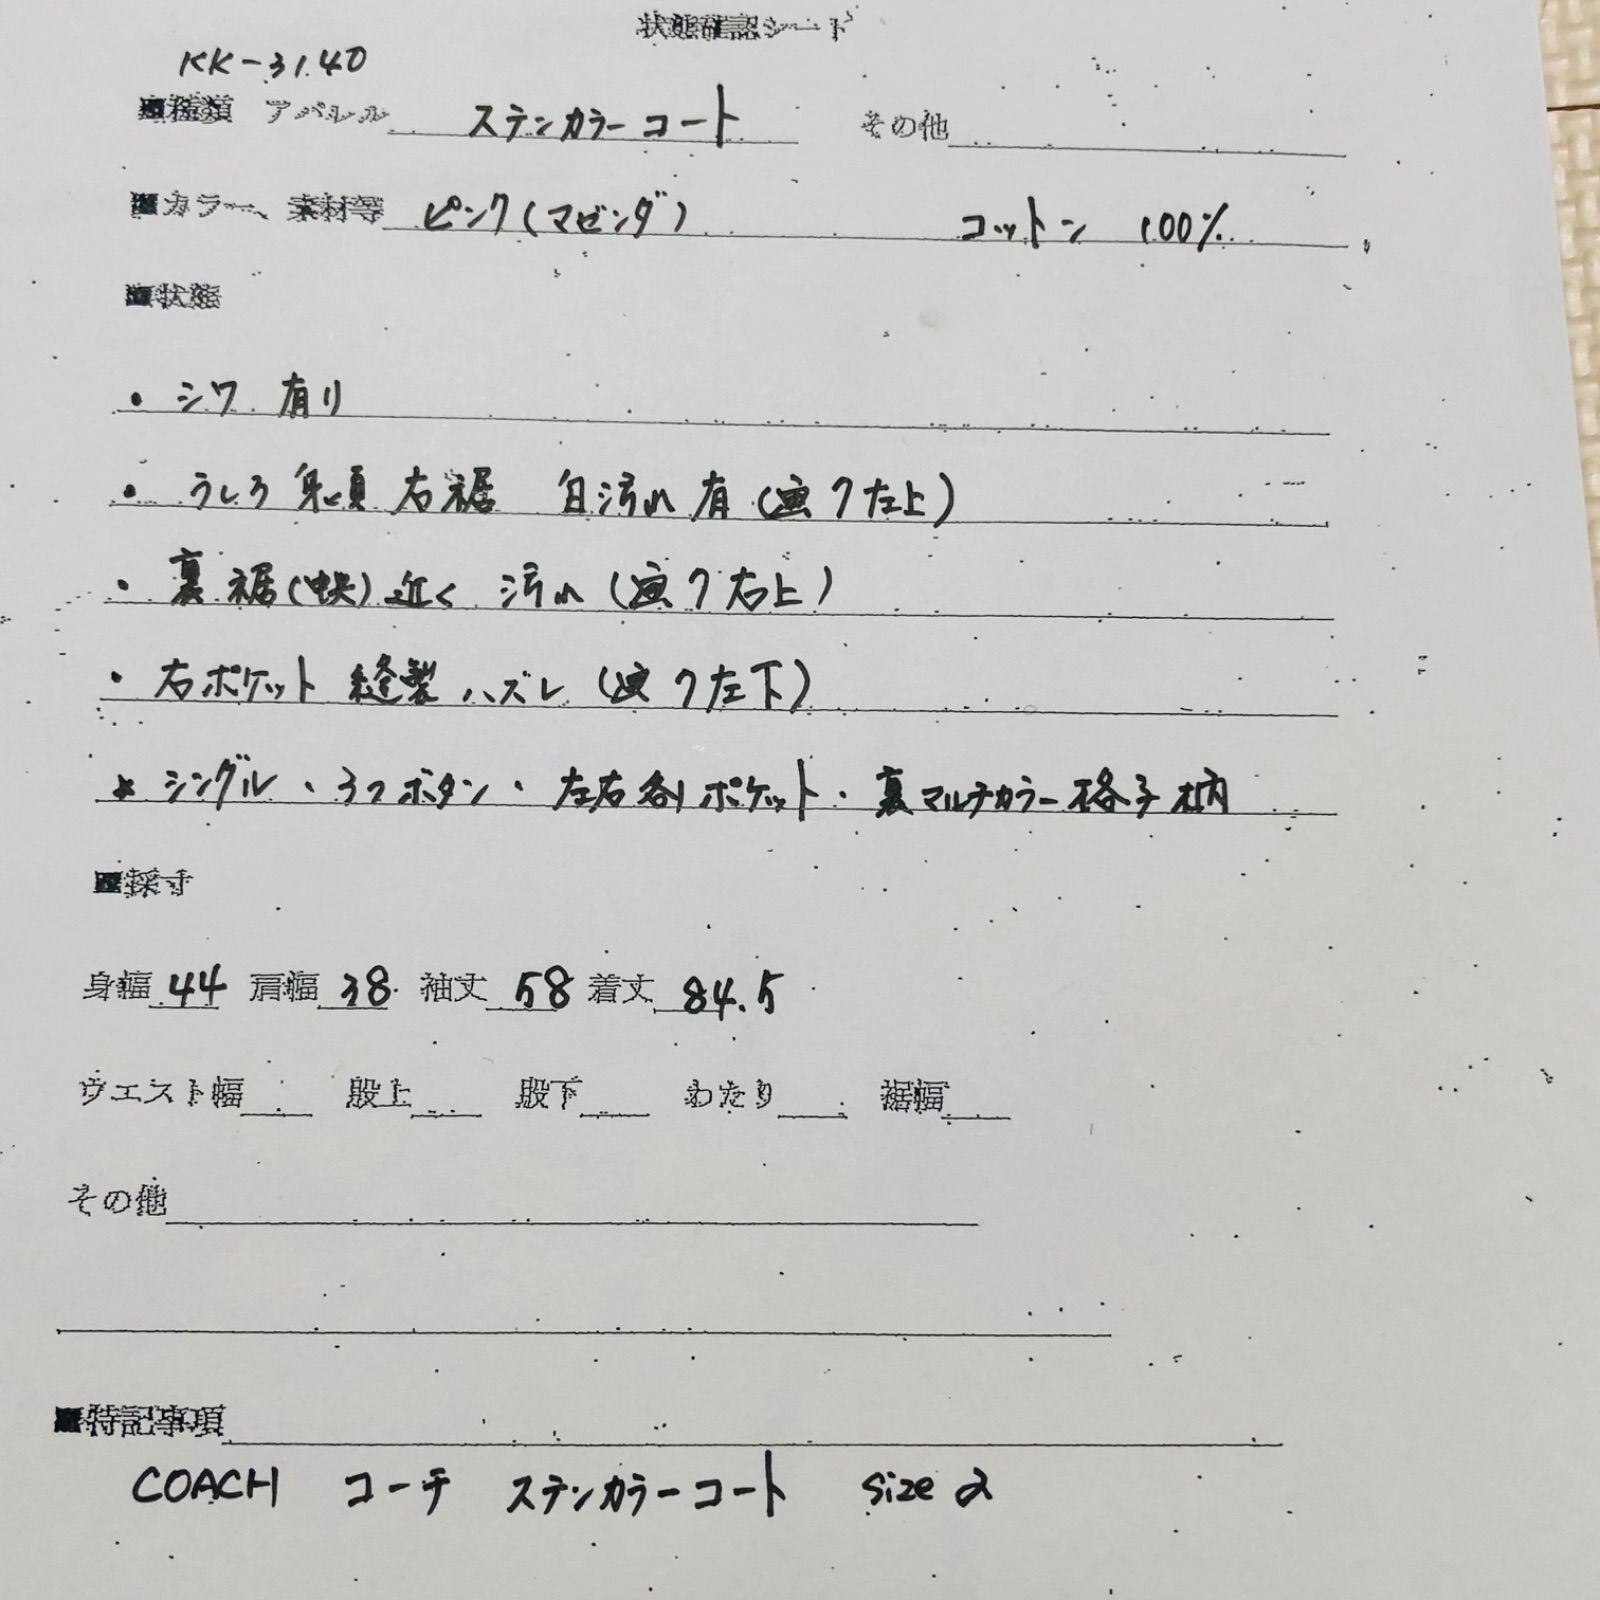 状態確認シート
KK-3140
■種類 アパレル ステンカラーコート その他
■カラー、素材等 ピンク(マゼンダ) コットン 100%
■状態
・シワ 有り
・うしろ身頃 右裾 白汚れ有(画7左上)
・裏裾(中央)近く 汚れ(画7右上)
・右ポケット 縫製ハズレ(画7左下)
★シングル・3つボタン・左右各1ポケット・裏マルチカラー格子柄
■採寸
身幅 44 肩幅 38 袖丈 58 着丈 84.5
ウエスト幅 股上 股下 わたり 裾幅
その他
■特記事項
COACH コーチ ステンカラーコート size 2